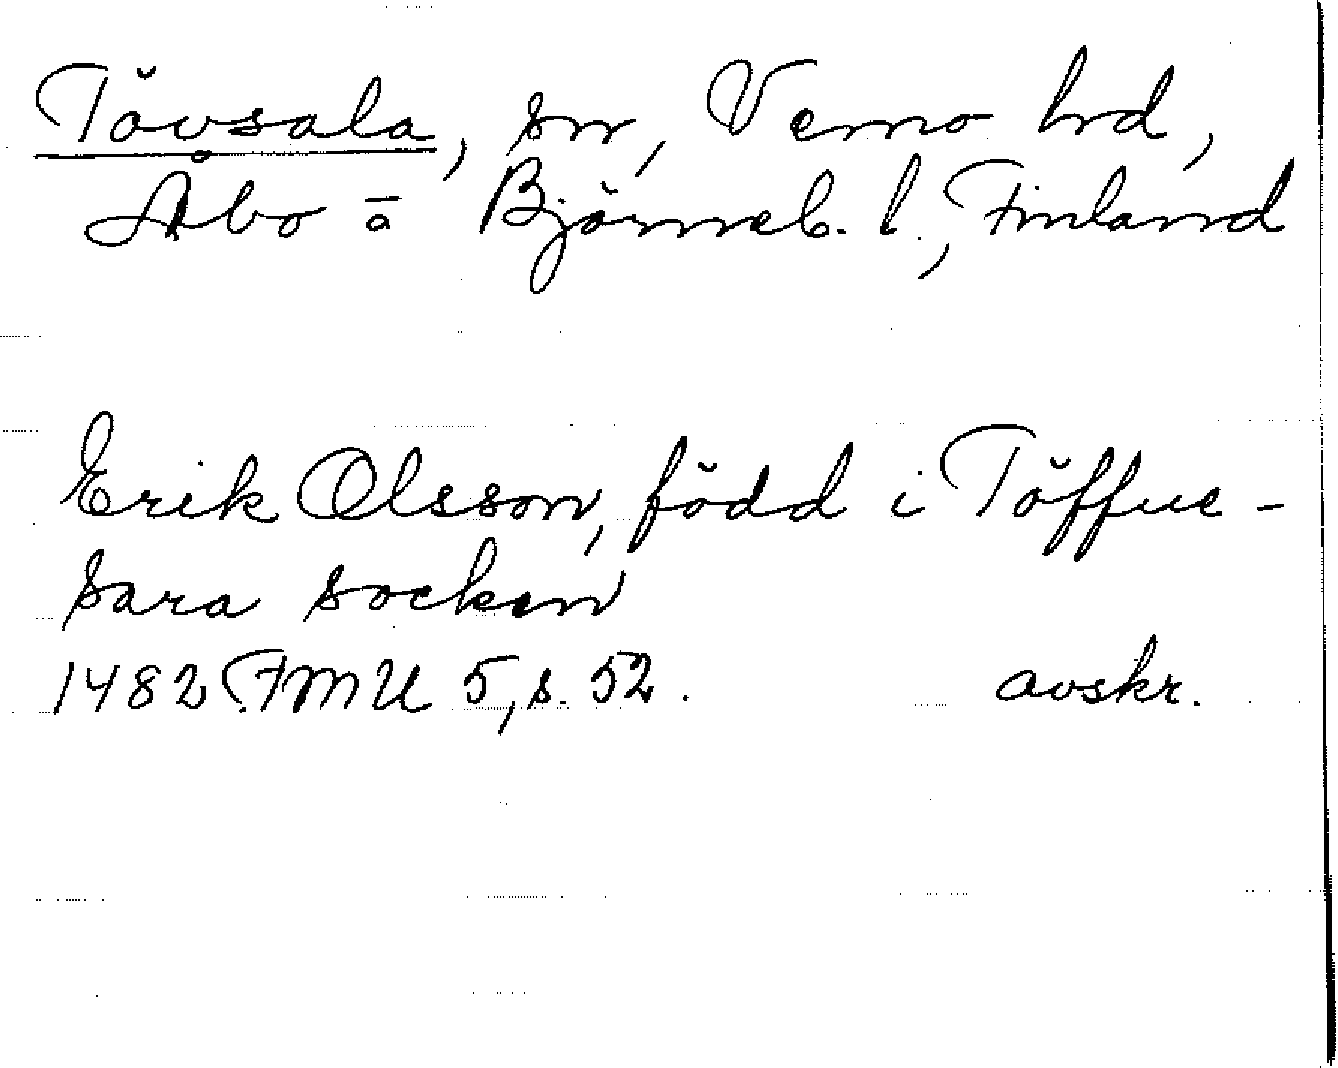 Tövsala, sn, Vemo hd,
Åbo o Björneb. l., Finland
Erik Olsson, född i Töffue-
sara socken
1482 FMU 5, s. 52. avskr.